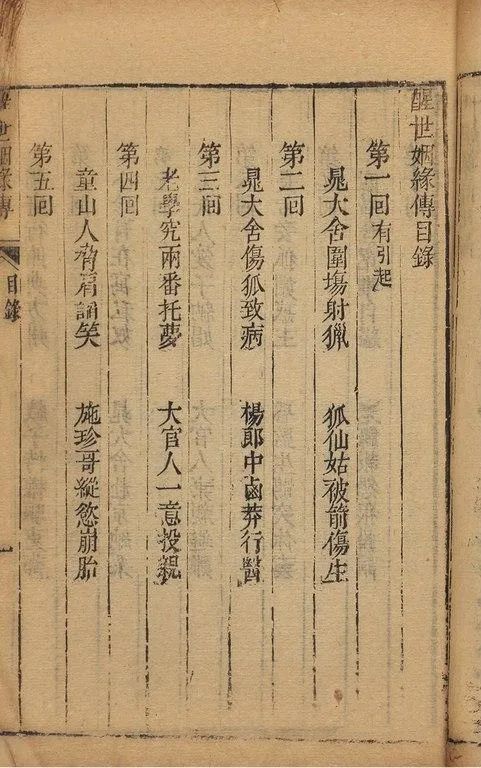 醒世姻緣傳目錄
第一回有引起
晁大舍圍塲射獵　狐仙姑被箭傷生
第二回
晁大舍傷狐致病　楊郎中鹵莽行醫
第三回
老學究兩番托夢　大官人一意投親
第四回
童山人脅肩諂笑　施珍哥縱慾崩胎
第五回
醒世姻緣傳　目錄　一